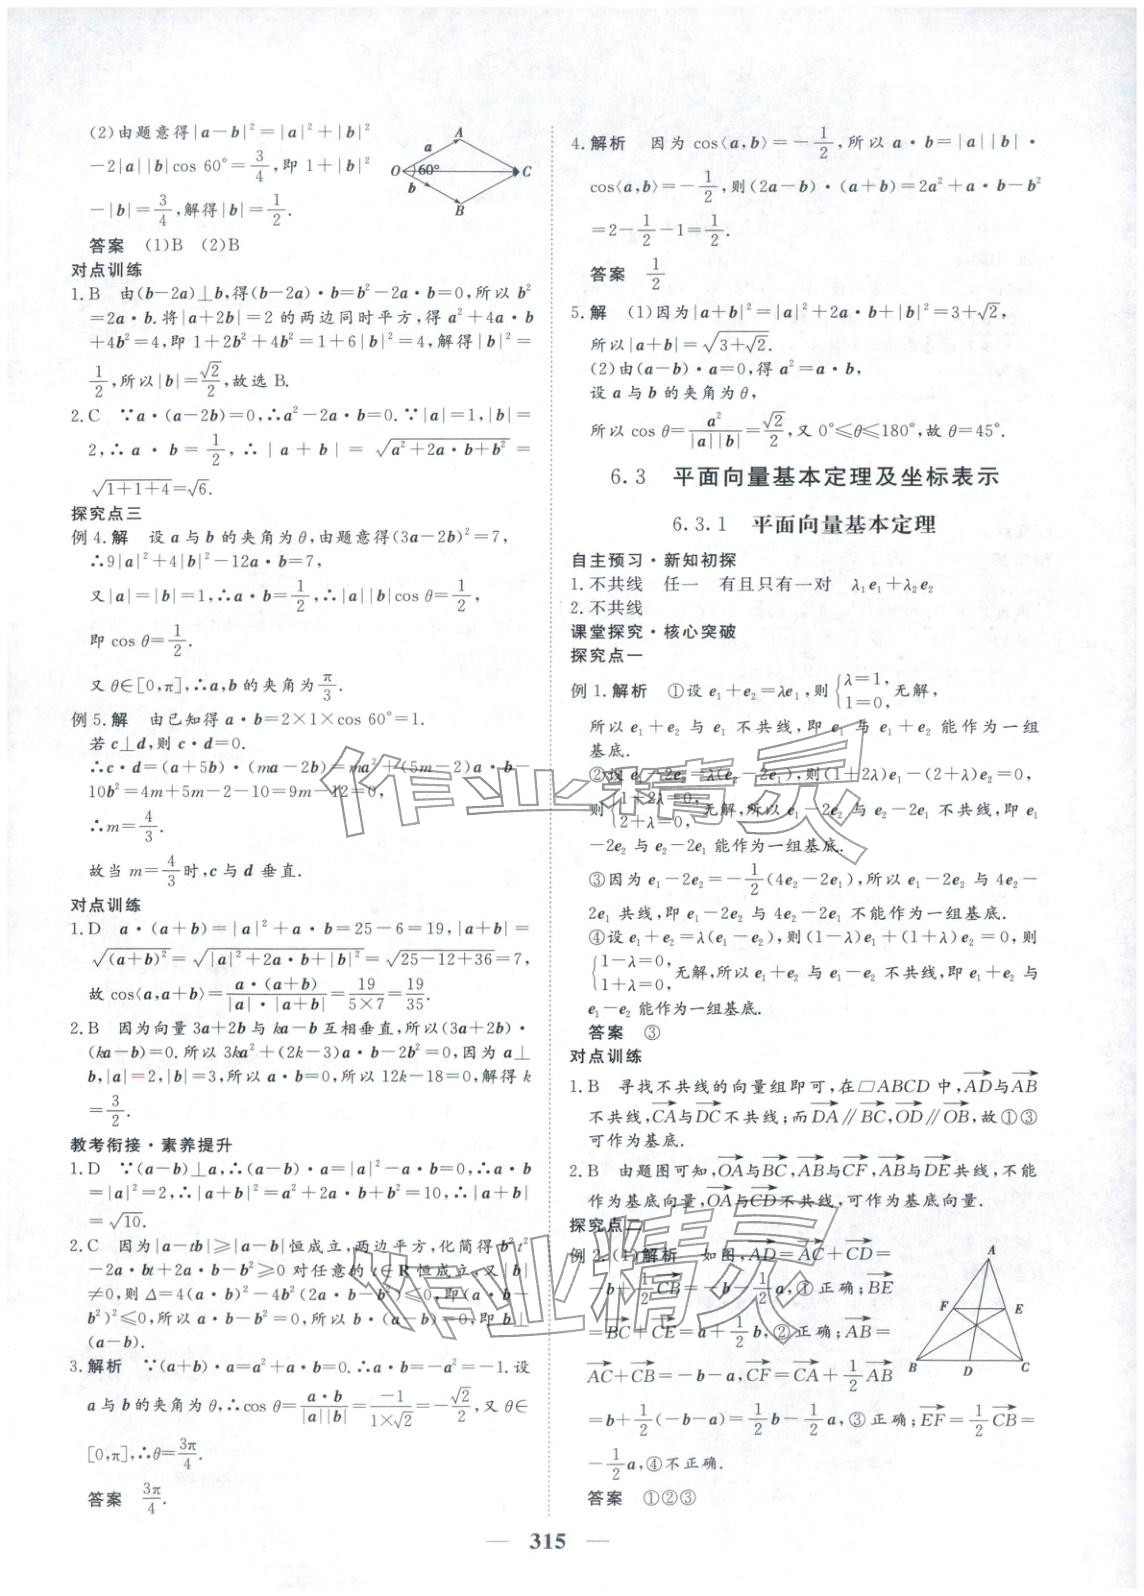 (2)由题意得|a-b|²=|a|²+|b|²
-2|a||b|cos 60°=3/4,即 1+|b|²
-|b|=3/4,解得|b|=1/2.
A
a
O 60° C
b
B
答案 (1)B (2)B
对点训练
1.B 由(b-2a)⊥b,得(b-2a)·b=b²-2a·b=0,所以 b²
=2a·b.将|a+2b|=2 的两边同时平方,得 a²+4a·b
+4b²=4,即 1+2b²+4b²=1+6|b|²=4,解得|b|²=
1/2,所以|b|=√2/2,故选 B.
2.C ∵a·(a-2b)=0,∴a²-2a·b=0.∵|a|=1,|b|=
2,∴a·b=1/2,∴|a+b|=√(a²+2a·b+b²)=
√(1+1+4)=√6.
探究点三
例 4.解 设 a 与 b 的夹角为 θ,由题意得(3a-2b)²=7,
∴9|a|²+4|b|²-12a·b=7,
又|a|=|b|=1,∴a·b=1/2,∴|a||b|cos θ=1/2,
即 cos θ=1/2.
又 θ∈[0,π],∴a,b 的夹角为π/3.
例 5.解 由已知得 a·b=2×1×cos 60°=1.
若 c⊥d,则 c·d=0.
∴c·d=(a+5b)·(ma-2b)=ma²+(5m-2)a·b-
10b²=4m+5m-2-10=9m-12=0,
∴m=4/3.
故当 m=4/3时,c 与 d 垂直.
对点训练
1.D a·(a+b)=|a|²+a·b=25-6=19,|a+b|=
√((a+b)²)=√(|a|²+2a·b+|b|²)=√(25-12+36)=7,
故 cos⟨a,a+b⟩=a·(a+b)/(|a|·|a+b|)=19/(5×7)=19/35.
2.B 因为向量 3a+2b 与 ka-b 互相垂直,所以(3a+2b)·
(ka-b)=0.所以 3ka²+(2k-3)a·b-2b²=0,因为 a⊥
b,|a|=2,|b|=3,所以 a·b=0,所以 12k-18=0,解得 k
=3/2.
教考衔接·素养提升
1.D ∵(a-b)⊥a,∴(a-b)·a=|a|²-a·b=0,∴a·b
=|a|²=2,∴|a+b|²=a²+2a·b+b²=10,∴|a+b|
=√10.
2.C 因为|a-tb|≥|a-b|恒成立,两边平方,化简得 b²t²
-2a·bt+2a·b-b²≥0 对任意的 t∈R 恒成立,又|b|
≠0,则 Δ=4(a·b)²-4b²(2a·b-b²)≤0,即(a·b-
b²)²≤0,所以 a·b-b²=0,所以 b·(a-b)=0,即 b⊥
(a-b).
3.解析 ∵(a+b)·a=a²+a·b=0.∴a·b=-a²=-1.设
a 与 b 的夹角为 θ,∴cos θ=a·b/(|a||b|)=-1/(1×√2)=-√2/2,又 θ∈
[0,π],∴θ=3π/4.
答案 3π/4.
4.解析 因为 cos⟨a,b⟩=-1/2,所以 a·b=|a||b|·
cos⟨a,b⟩=-1/2,则(2a-b)·(a+b)=2a²+a·b-b²
=2-1/2-1=1/2.
答案 1/2
5.解 (1)因为|a+b|²=|a|²+2a·b+|b|²=3+√2,
所以|a+b|=√(3+√2).
(2)由(a-b)·a=0,得 a²=a·b,
设 a 与 b 的夹角为 θ,
所以 cos θ=a²/(|a||b|)=√2/2,又 0°≤θ≤180°,故 θ=45°.
6.3 平面向量基本定理及坐标表示
6.3.1 平面向量基本定理
自主预习·新知初探
1.不共线 任一 有且只有一对 λ₁e₁+λ₂e₂
2.不共线
课堂探究·核心突破
探究点一
例 1.解析 ①设 e₁+e₂=λe₁,则{λ=1, 1=0,无解,
所以 e₁+e₂ 与 e₁ 不共线,即 e₁ 与 e₁+e₂ 能作为一组
基底.
②设 e₁-2e₂=λ(e₂-2e₁),则(1+2λ)e₁-(2+λ)e₂=0,
则{1+2λ=0, 2+λ=0,无解,所以 e₁-2e₂ 与 e₂-2e₁ 不共线,即 e₁
-2e₂ 与 e₂-2e₁ 能作为一组基底.
③因为 e₁-2e₂=-1/2(4e₂-2e₁),所以 e₁-2e₂ 与 4e₂-
2e₁ 共线,即 e₁-2e₂ 与 4e₂-2e₁ 不能作为一组基底.
④设 e₁+e₂=λ(e₁-e₂),则(1-λ)e₁+(1+λ)e₂=0,则
{1-λ=0, 1+λ=0,无解,所以 e₁+e₂ 与 e₁-e₂ 不共线,即 e₁+e₂ 与
e₁-e₂ 能作为一组基底.
答案 ③
对点训练
1.B 寻找不共线的向量组即可,在▱ABCD 中,AD→与AB→
不共线,CA→与DC→不共线;而DA→∥BC→,OD→∥OB→,故①③
可作为基底.
2.B 由题图可知,OA→与BC→,AB→与CF→,AB→与DE→共线,不能
作为基底向量,OA→与CD→不共线,可作为基底向量.
探究点二
例 2.(1)解析 如图,AD→=AC→+CD→=
-b+1/2CB→=-b-1/2a,①正确;BE→
=BC→+CE→=a+1/2b,②正确;AB→=
AC→+CB→=-b-a,CF→=CA→+1/2AB→
=b+1/2(-b-a)=1/2b-1/2a,③正确;EF→=1/2CB→=
-1/2a,④不正确.
A
F E
B D C
答案 ①②③
315
作业精灵
作业精灵